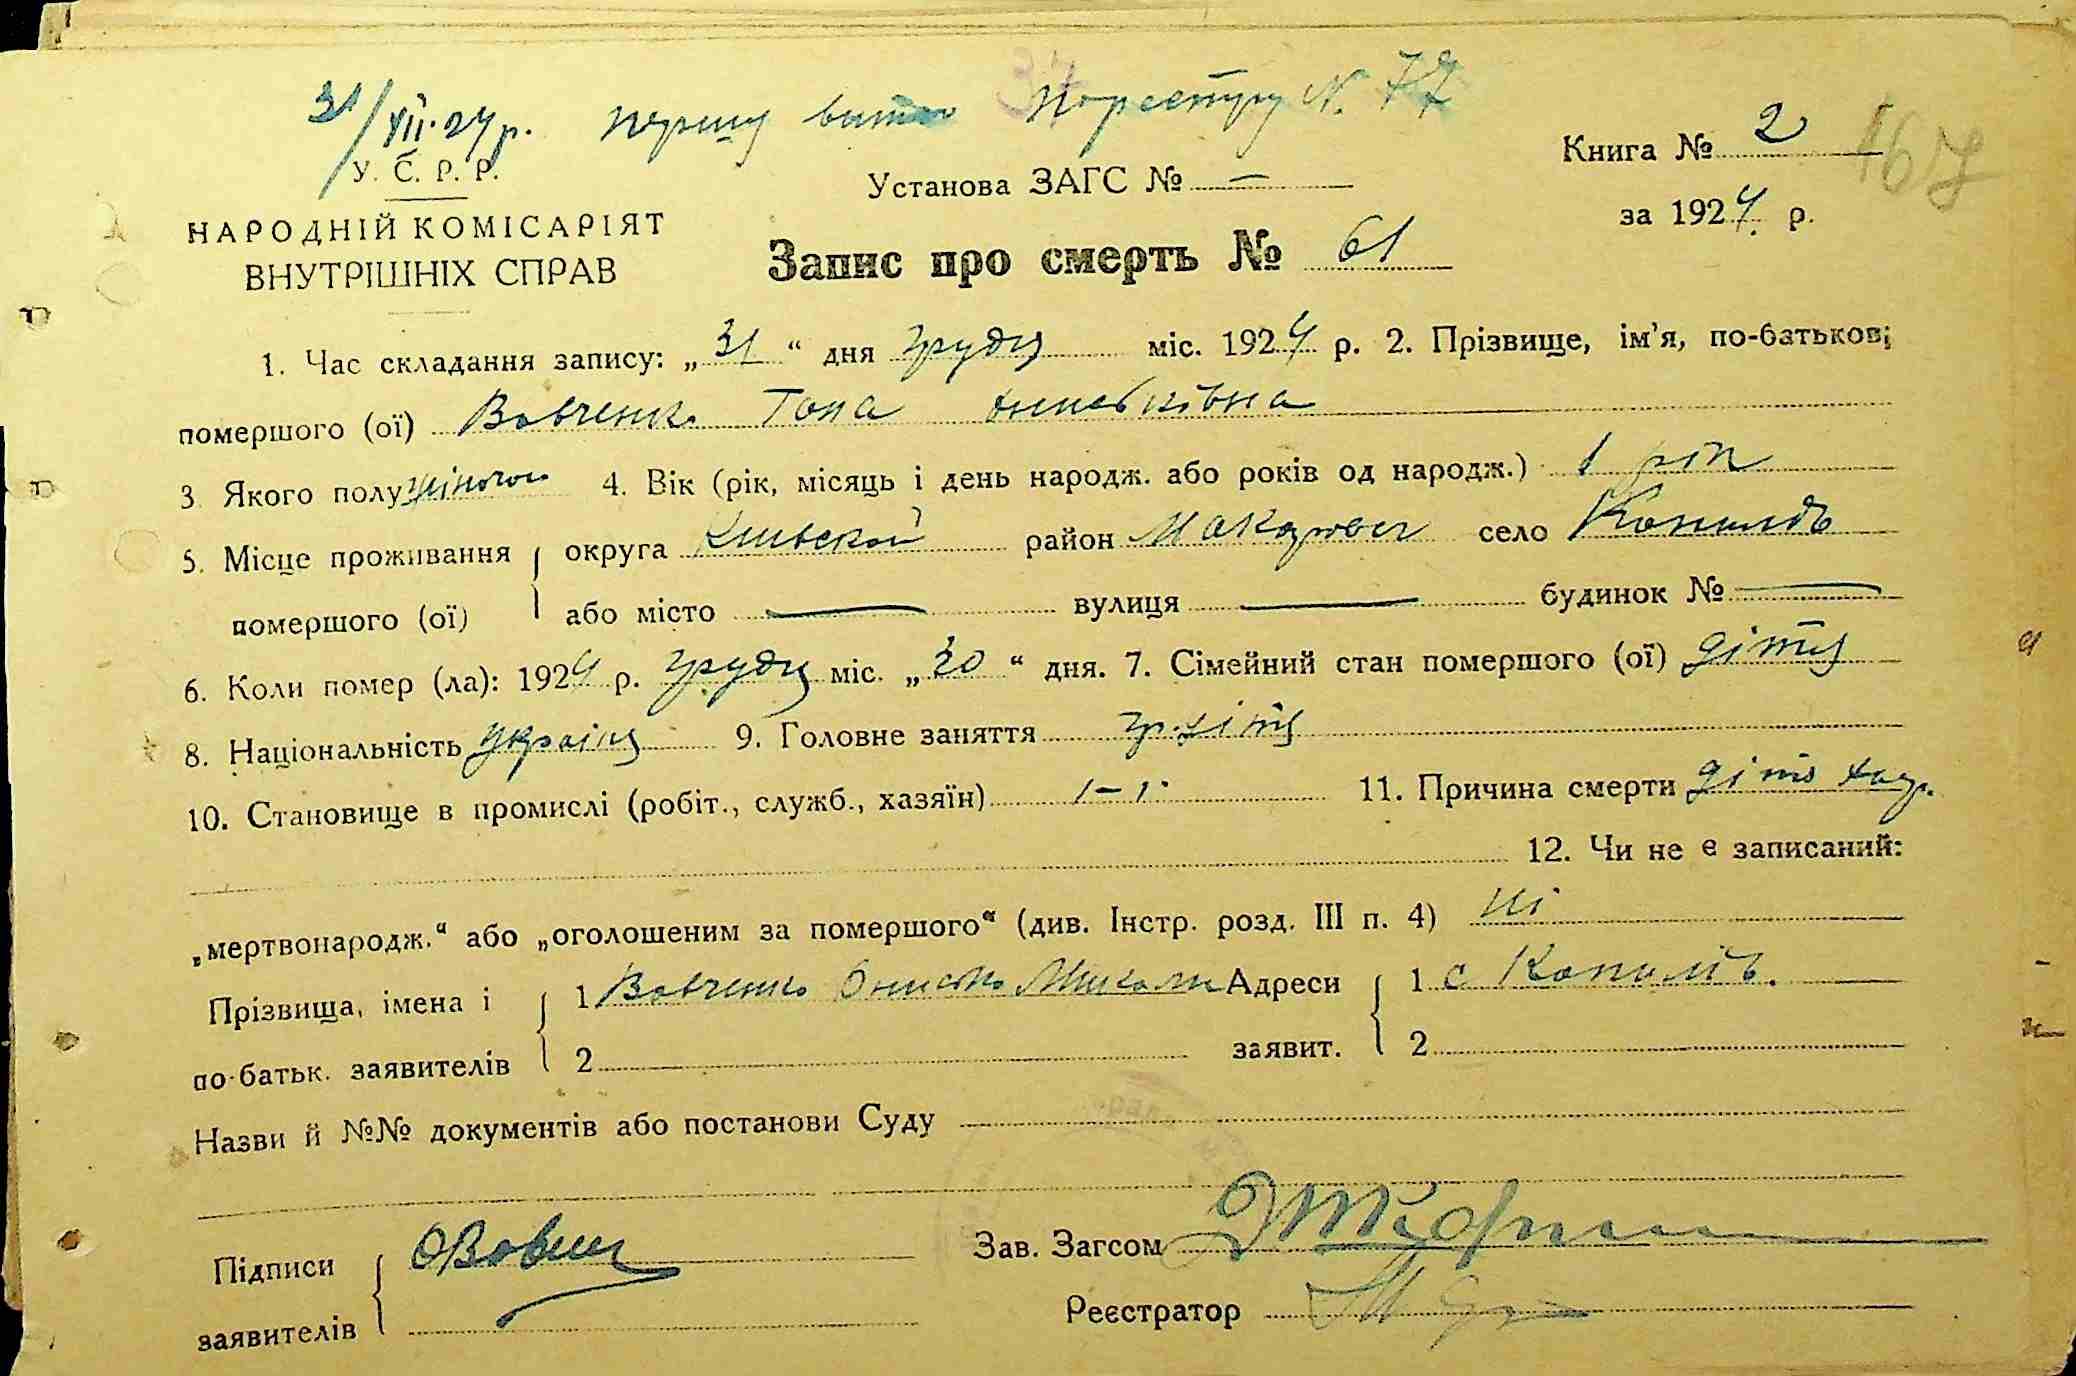 31/VII.24 р. першу Пореєстру N. 77
У. С. Р. Р.
Книга № 2
167
Установа ЗАГС № —
за 1924 р.
НАРОДНІЙ КОМІСАРІЯТ
ВНУТРІШНІХ СПРАВ
Запис про смерть № 61
1. Час складання запису: „ 31 “ дня грудня міс. 1924 р. 2. Прізвище, ім'я, по-батькові
помершого (ої) Вовченко
3. Якого полу жіночого 4. Вік (рік, місяць і день народж. або років од народж.) 1 рік
5. Місце проживання округа Київской район Макарівськ село Копилів
помершого (ої) або місто — вулиця — будинок № —
6. Коли помер (ла): 1924 р. грудня міс. „ 30 “ дня. 7. Сімейний стан помершого (ої) дітя
8. Національність україн 9. Головне заняття
10. Становище в промислі (робіт., служб., хазяїн) 11. Причина смерти
12. Чи не є записаний:
„мертвонародж.“ або „оголошеним за помершого“ (див. Інстр. розд. III п. 4) ні
Прізвища, імена і 1 Вовченко Онисько Микол Адреси 1 с Копилів.
по-батьк. заявителів 2 заявит. 2
Назви й №№ документів або постанови Суду
Підписи Зав. Загсом
заявителів Реєстратор